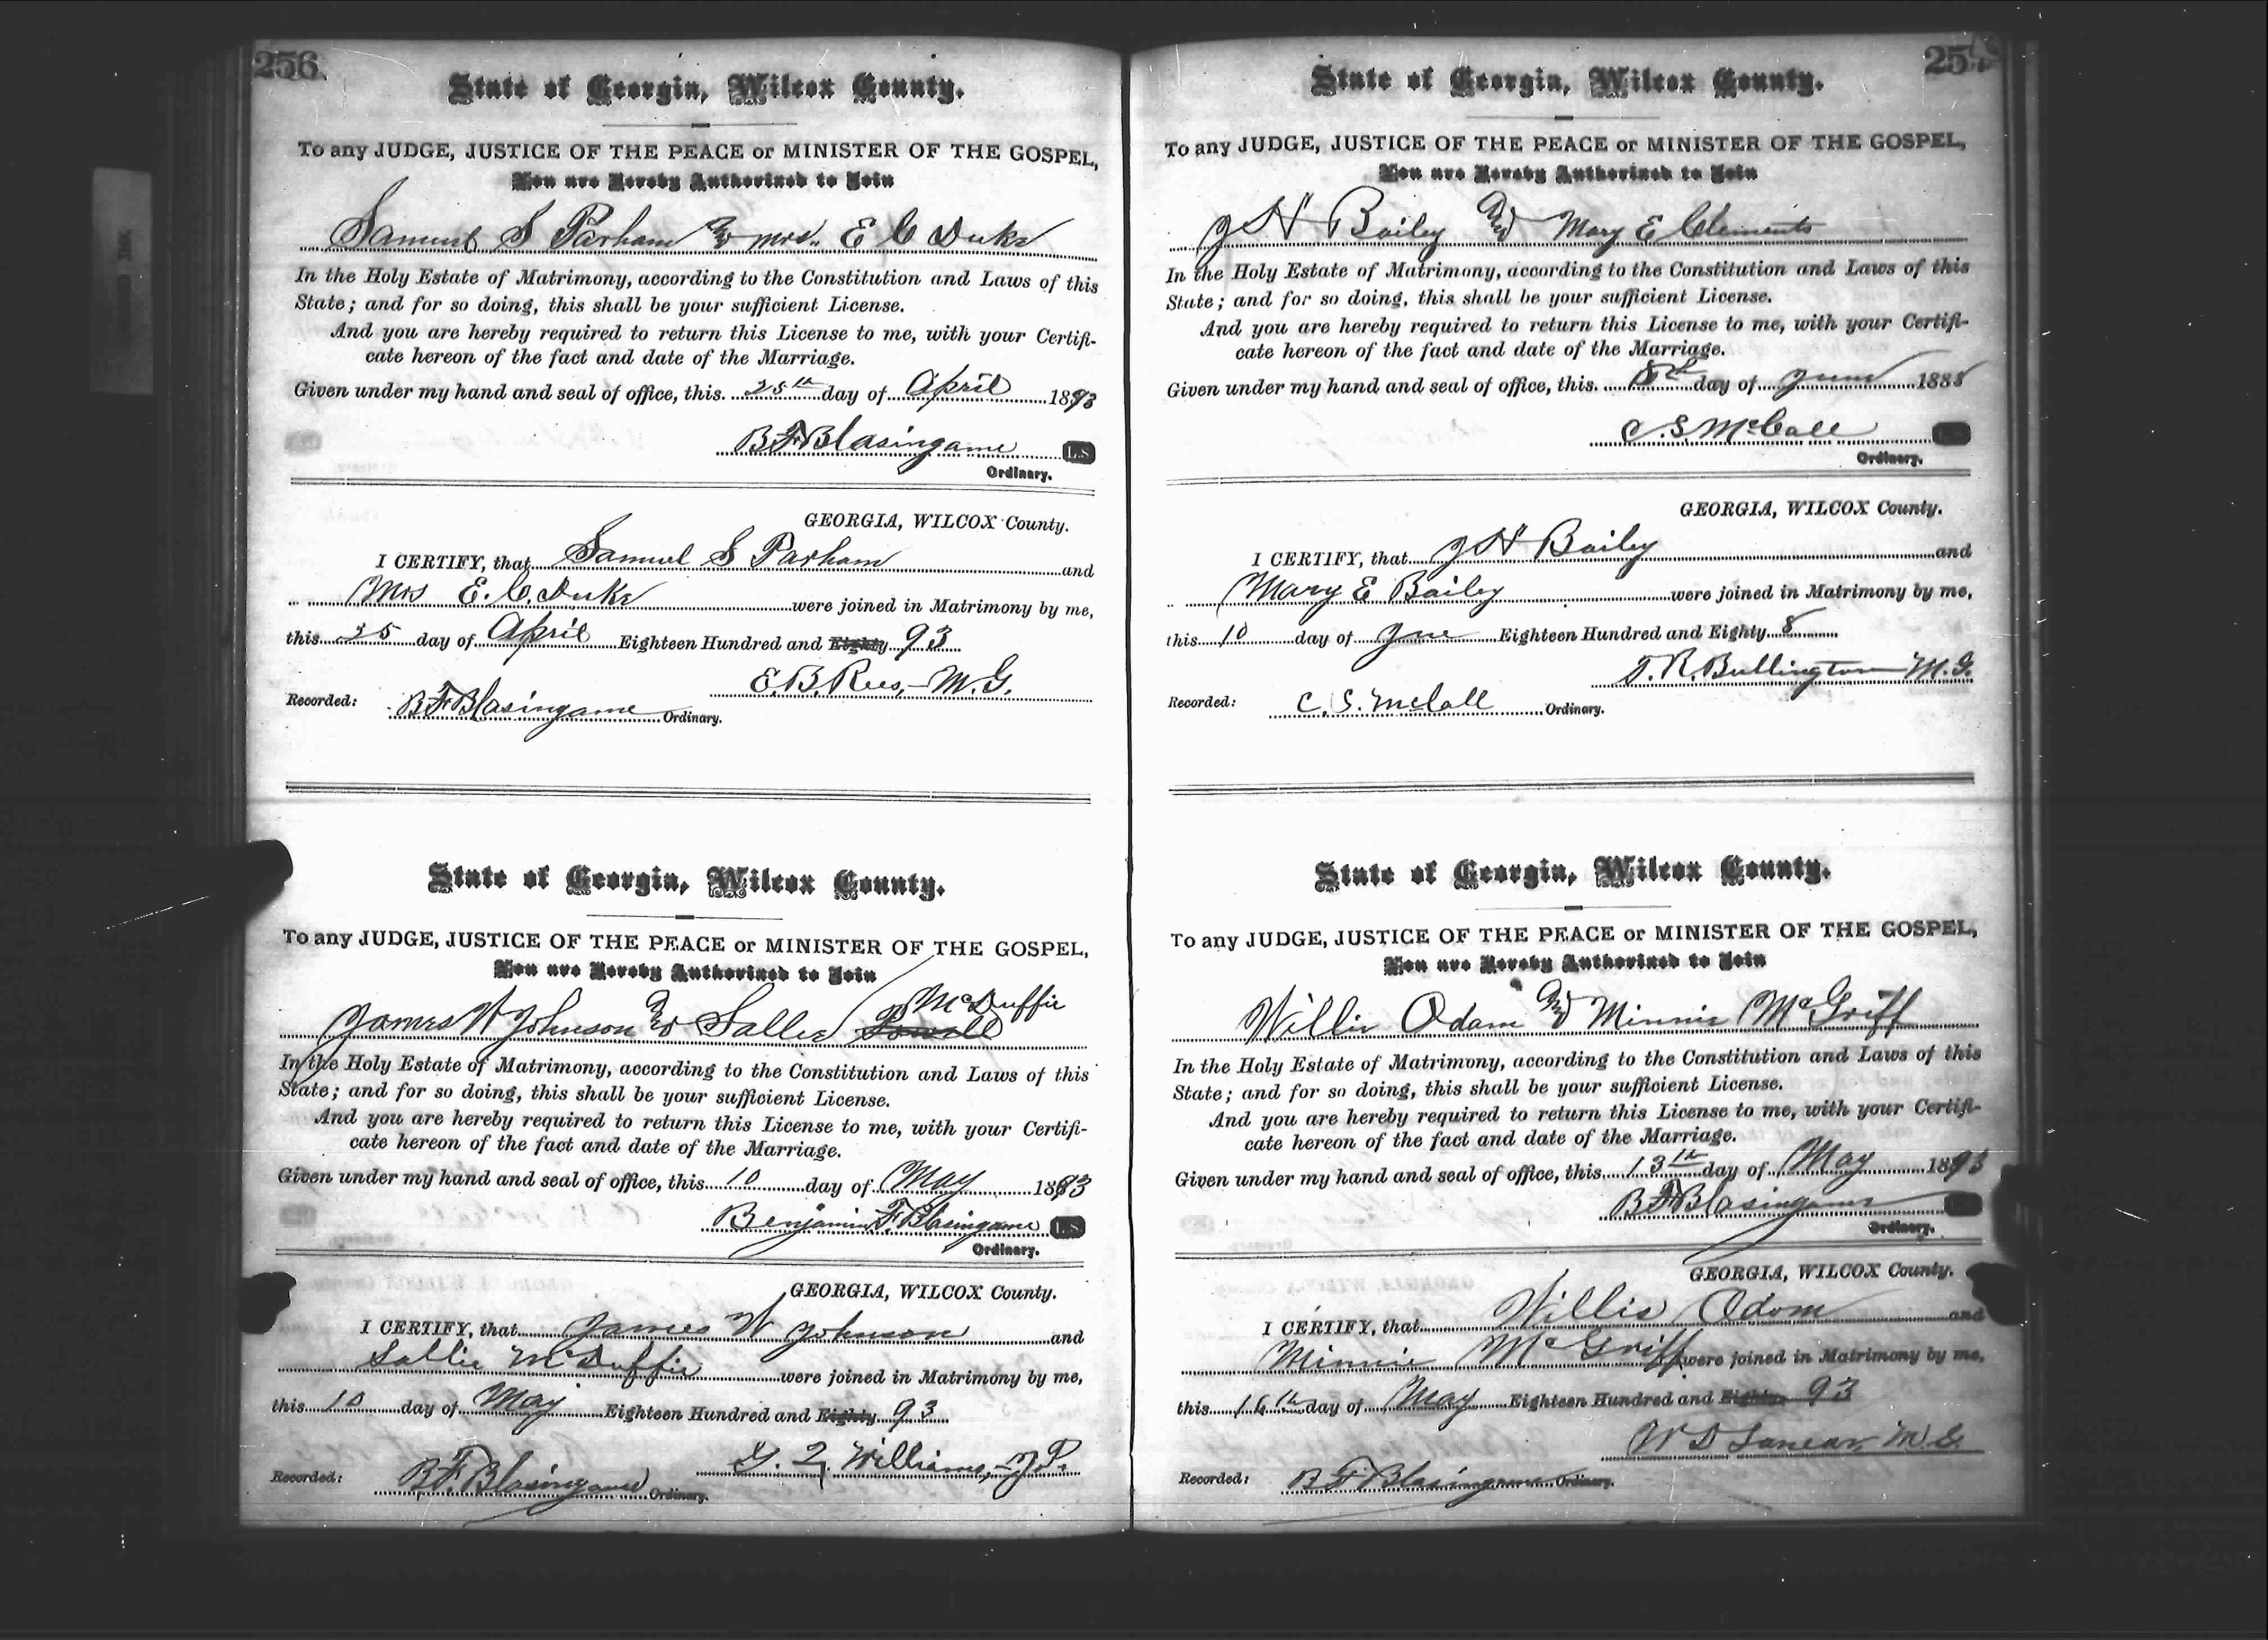 256
State of Georgia, Wilcox County.
To any JUDGE, JUSTICE OF THE PEACE or MINISTER OF THE GOSPEL,
You are Hereby Authorized to Join
Samuel S Parham & Mrs. E C Duke
In the Holy Estate of Matrimony, according to the Constitution and Laws of this
State; and for so doing, this shall be your sufficient License.
And you are hereby required to return this License to me, with your Certifi-
cate hereon of the fact and date of the Marriage.
Given under my hand and seal of office, this 25th day of April 1893
B F Blasingame L.S
Ordinary.
GEORGIA, WILCOX County.
I CERTIFY, that Samuel S Parham and
Mrs E. C. Duke were joined in Matrimony by me,
this 25 day of April Eighteen Hundred and Eighty 93
E. B. Rees, M.G.
Recorded: B F Blasingame Ordinary.
State of Georgia, Wilcox County.
To any JUDGE, JUSTICE OF THE PEACE or MINISTER OF THE GOSPEL,
You are Hereby Authorized to Join
McDuffie
James W Johnson & Sallie Powell
In the Holy Estate of Matrimony, according to the Constitution and Laws of this
State; and for so doing, this shall be your sufficient License.
And you are hereby required to return this License to me, with your Certifi-
cate hereon of the fact and date of the Marriage.
Given under my hand and seal of office, this 10 day of May 1893
Benjamin F. Blasingame L.S
Ordinary.
GEORGIA, WILCOX County.
I CERTIFY, that James W Johnson and
Sallie McDuffie were joined in Matrimony by me,
this 10 day of May Eighteen Hundred and Eighty 93
Williams, J.P.
Recorded: B F Blasingame Ordinary.
257
State of Georgia, Wilcox County.
To any JUDGE, JUSTICE OF THE PEACE or MINISTER OF THE GOSPEL,
You are Hereby Authorized to Join
J H Bailey & Mary E Clements
In the Holy Estate of Matrimony, according to the Constitution and Laws of this
State; and for so doing, this shall be your sufficient License.
And you are hereby required to return this License to me, with your Certifi-
cate hereon of the fact and date of the Marriage.
Given under my hand and seal of office, this day of June 1888
C. S. McCall
Ordinary.
GEORGIA, WILCOX County.
I CERTIFY, that J H Bailey and
Mary E Bailey were joined in Matrimony by me,
this 10 day of June Eighteen Hundred and Eighty 8
T. R. Bullington M.G.
Recorded: C. S. McCall Ordinary.
State of Georgia, Wilcox County.
To any JUDGE, JUSTICE OF THE PEACE or MINISTER OF THE GOSPEL,
You are Hereby Authorized to Join
Willis Odam & Minnie McGriff
In the Holy Estate of Matrimony, according to the Constitution and Laws of this
State; and for so doing, this shall be your sufficient License.
And you are hereby required to return this License to me, with your Certifi-
cate hereon of the fact and date of the Marriage.
Given under my hand and seal of office, this 13th day of May 1893
B F Blasingame
Ordinary.
GEORGIA, WILCOX County.
I CERTIFY, that Willis Odom and
Minnie McGriff were joined in Matrimony by me,
this 16th day of May Eighteen Hundred and Eighty 93
W D
Recorded: B F Blasingame Ordinary.